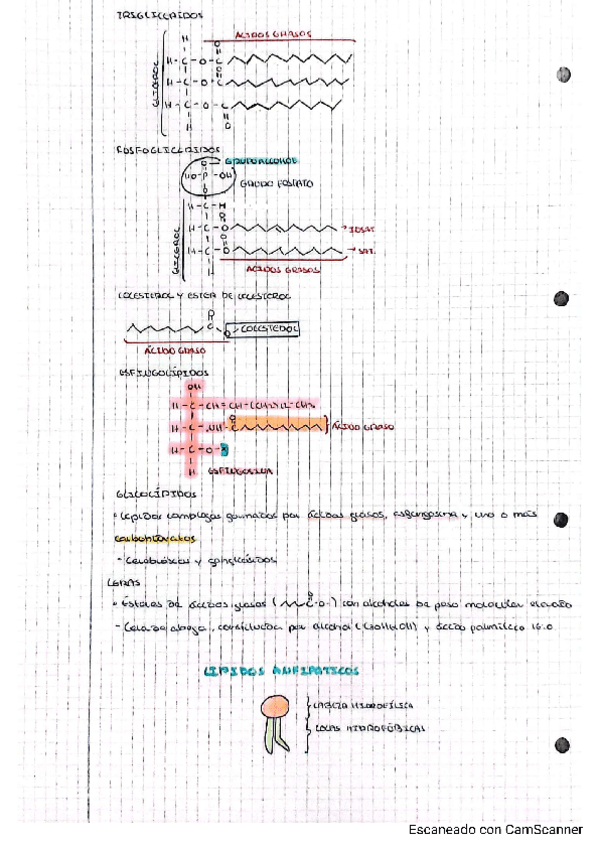 TRIGLICÉRIDOS
ÁCIDOS GRASOS
GLICEROL
H
H-C-O-C
O
H-C-O-C
H-C-O-C
H
O
FOSFOGLICÉRIDOS
GRUPO ALCOHOL
HO-P-OH
GRUPO FOSFATO
GLICEROL
H-C-H
H-C-O
→ INSAT.
H-C-O
→ SAT.
ÁCIDOS GRASOS
COLESTEROL Y ESTER DE COLESTEROL
COLESTEROL
ÁCIDO GRASO
ESFINGOLÍPIDOS
OH
H-C-CH=CH-(CH2)12-CH3
H-C-NH-C
ÁCIDO GRASO
H-C-O-X
H
ESFINGOSINA
GLICOLÍPIDOS
· Lípidos complejos formados por ácidos grasos, esfingosina y uno o más
carbohidratos
- Cerebrósidos y gangliósidos
CERAS
· Ésteres de ácidos grasos ( C-O-) con alcoholes de peso molecular elevado
- Cera de abeja, constituida por alcohol y ácido palmítico 16:0
LÍPIDOS ANFIPÁTICOS
CABEZA HIDROFÍLICA
COLAS HIDROFÓBICAS
Escaneado con CamScanner